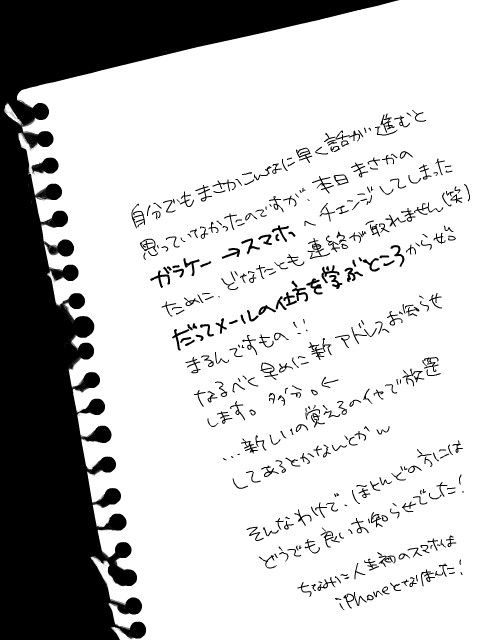 自分でもまさかこんなに早く話が進むと
思っていなかったのですが、本日まさかの
ガラケー→スマホへチェンジしてしまった
ために、どなたとも連絡が取れません(笑)
だってメールの仕方を学ぶところから始
まるんですもの!!
なるべく早めに新アドレスお知らせ
します。多分。←
…新しいの覚えるのイヤで放置
してあるとかなんとかw
そんなわけで、ほとんどの方には
どうでも良いお知らせでした!
ちなみに人生初のスマホは
iPhoneとなりました!